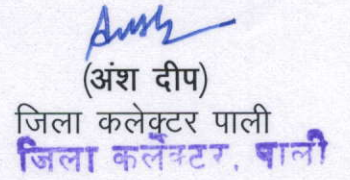 (अंश दीप)
जिला कलेक्टर पाली
जिला कलेक्टर, पाली